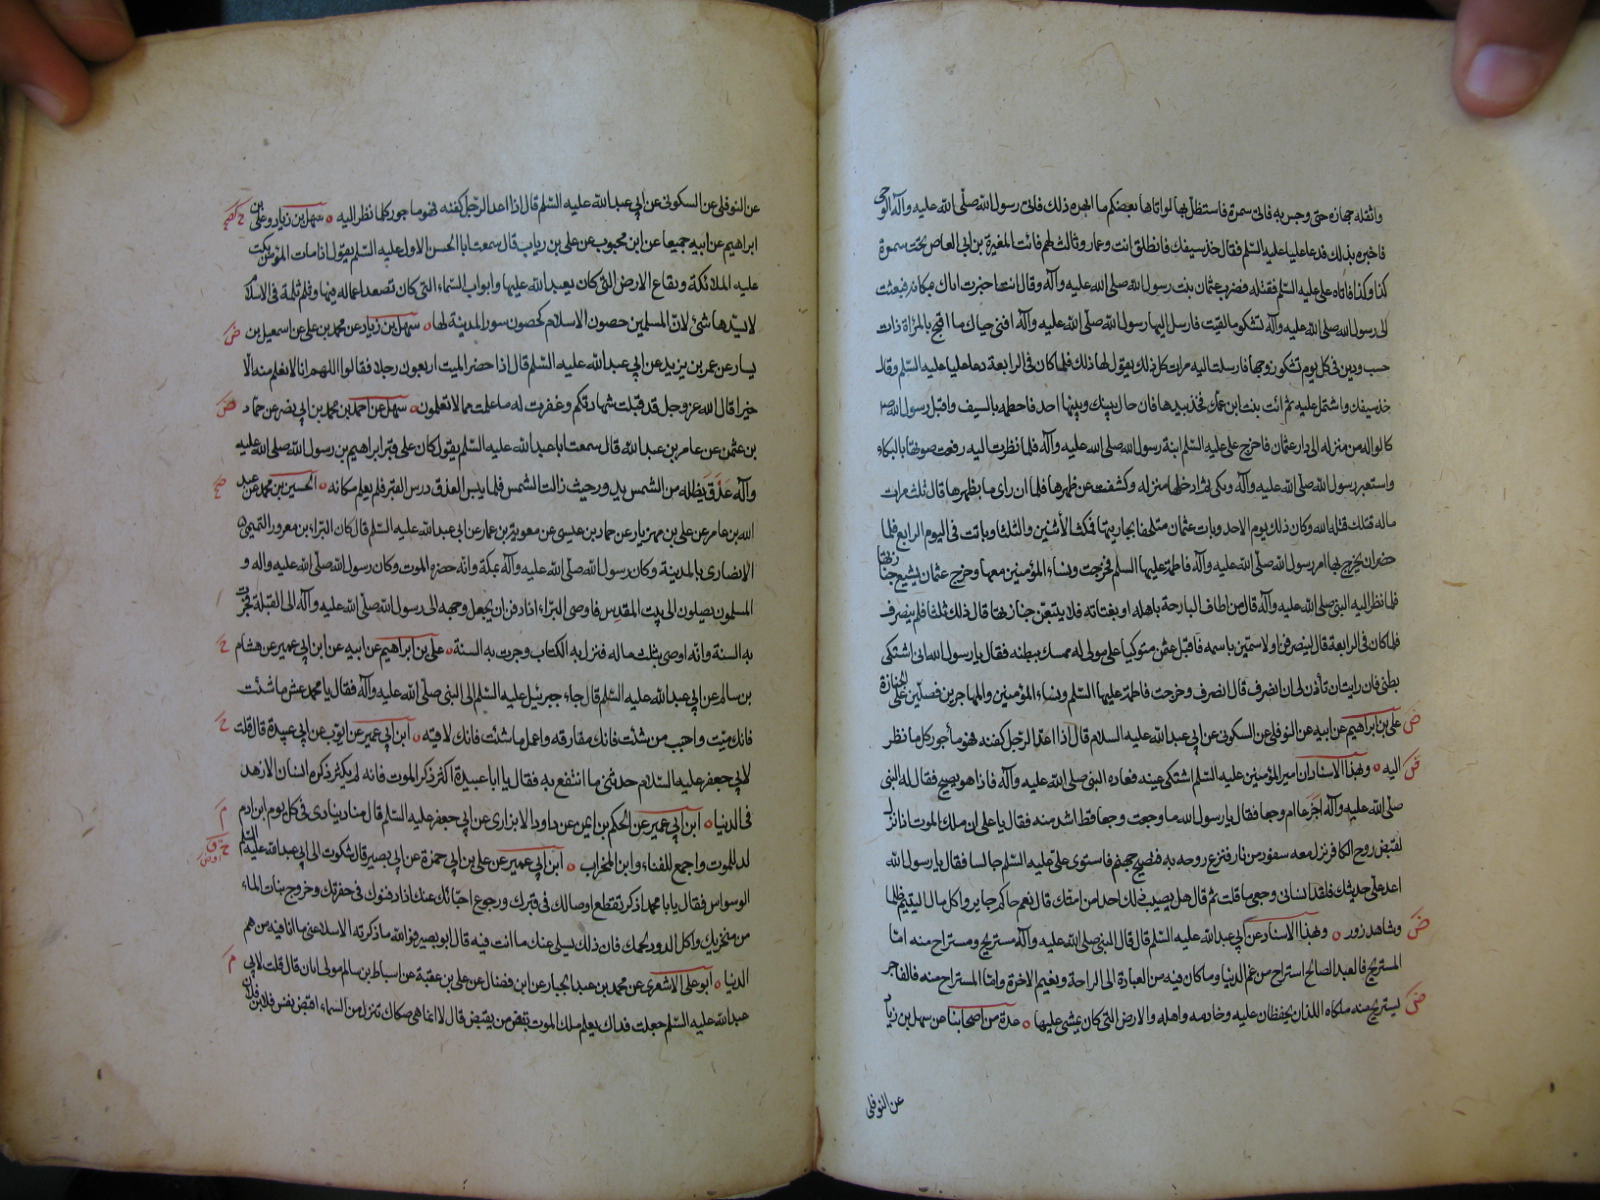 واثقله جهازه حتى وجس به فاتى سمرة فاستظل بها لو اتاها بعضكم ما ابهره ذلك فاتى رسول الله صلى الله عليه وآله الوحى
فاخبره بذلك فدعا عليا عليه السلم فقال خذ سيفك فانطلق انت وعمار وثالث لهم فائت المغيرة بن ابى العاص تحت سمرة
كذا وكذا فاتاه على عليه السلم فقتله فضرب عثمان بنت رسول الله صلى الله عليه وآله وقال انت اخبرت اباك بمكانه فبعثت
الى رسول الله صلى الله عليه وآله تشكو ما لقيت فارسل اليها رسول الله صلى الله عليه وآله اقنى حياك ما اقبح بالمراة ذات
حسب ودين فى كل يوم تشكو زوجها فارسلت اليه مرات كل ذلك يقول لها ذلك فلما كان فى الرابعة دعا عليا عليه السلم وقال
خذ سيفك واشتمل عليه ثم ائت بنت ابن عمك فخذ بيدها فان حال بينك وبينها احد فاحطمه بالسيف واقبل رسول الله ص
كالواله من منزله الى دار عثمان فاخرج على عليه السلم ابنة رسول الله صلى الله عليه وآله فلما نظرت اليه رفعت صوتها بالبكاء
واستعبر رسول الله صلى الله عليه وآله وبكى ثم ادخلها منزله وكشفت عن ظهرها فلما ان راى ما بظهرها قال ثلث مرات
ماله قتلك قتله الله وكان ذلك يوم الاحد وبات عثمان متلحفا بجاريتها فمكث الأثنين والثلثا وماتت فى اليوم الرابع فلما
حضر ان يخرج بها امر رسول الله صلى الله عليه وآله فاطمة عليها السلم فخرجت ونساء المؤمنين معها وخرج عثمان يشيع جنازتها
فلما نظر اليه النبى صلى الله عليه وآله قال من اطاف البارحة باهله او بفتاته فلا يتبعن جنازتها قال ذلك ثلثا فلم ينصرف
فلما كان فى الرابعة قال لينصرفن او لاسمين باسمه فاقبل عثمن متوكيا على مولى له ممسك ببطنه فقال يا رسول الله انى اشتكى
بطنى فان رايت ان تأذن لى ان انصرف قال انصرف وخرجت فاطمة عليها السلم ونساء المؤمنين والمهاجرين فصلين على الجنازة
ض على بن ابراهيم عن ابيه عن النوفلى عن السكونى عن ابى عبد الله عليه السلام قال اذا اعد الرجل كفنه فهو مأجور كل ما نظر
ض اليه ه وبهذا الاسناد ان امير المؤمنين عليه السلم اشتكى عينه فعاده النبى صلى الله عليه وآله فاذا هو يصيح فقال له النبى
صلى الله عليه وآله اجزعا ام وجعا فقال يا رسول الله ما وجعت وجعا قط اشد منه فقال يا على ان ملك الموت اذا نزل
لقبض روح الكافر نزل معه سفود من نار فنزع روحه به فتصيح جهنم فاستوى على عليه السلم جالسا فقال يا رسول الله
اعد على حديثك فلقد انسانى وجعى ما قلت ثم قال هل يصيب ذلك احدا من امتك قال نعم حاكم جاير واكل مال اليتيم ظلما
ض وشاهد زور ه وبهذا الاسناد عن ابى عبد الله عليه السلم قال قال النبى صلى الله عليه وآله مستريح ومستراح منه اما
المستريح فالعبد الصالح استراح من غم الدنيا وما كان فيه من العبادة الى الراحة ونعيم الاخرة واما المستراح منه فالفاجر
ض يستريح منه ملكاه اللذان يحفظان عليه وخادمه واهله والارض التى كان يمشى عليها ه عدة من اصحابنا عن سهل بن زياد
عن النوفلى
عن النوفلى عن السكونى عن ابى عبد الله عليه السلم قال اذا اعد الرجل كفنه فهو ماجور كلما نظر اليه ه سهل بن زياد وعلى بن
ابراهيم عن ابيه جميعا عن ابن محبوب عن على بن رياب قال سمعت ابا الحسن الاول عليه السلم يقول اذا مات المؤمن بكت
عليه الملائكة وبقاع الارض التى كان يعبد الله عليها وابواب السماء التى كان تصعد اعماله فيها وثلم ثلمة فى الاسلام
لا يسدها شئ لان المسلمين حصون الاسلام كحصون سور المدينة لها ه سهل بن زياد عن محمد بن على عن اسمعيل بن ض
يسار عن عمر بن يزيد عن ابى عبد الله عليه السلم قال اذا حضر الميت اربعون رجلا فقالوا اللهم انا لا نعلم منه الا
خيرا قال الله عز وجل قد قبلت شهادتكم وغفرت له ما علمت مما لا تعلمون ه سهل عن احمد بن محمد بن ابى نصر عن حماد ض
بن عثمن عن عامر بن عبد الله قال سمعت ابا عبد الله عليه السلم يقول كان على قبر ابراهيم بن رسول الله صلى الله عليه
وآله عذق يظله من الشمس يدور حيث زالت الشمس فلما يبس العذق درس القبر فلم يعلم مكانه ه الحسين بن محمد عن عبد
الله بن عامر عن على بن مهزيار عن حماد بن عيسى عن معوية بن عمار عن ابى عبد الله عليه السلم قال كان البراء بن معرور التميمى
الانصارى بالمدينة وكان رسول الله صلى الله عليه وآله بمكة وانه حضره الموت وكان رسول الله صلى الله عليه واله و
المسلمون يصلون الى بيت المقدس فاوصى البراء اذا دفن ان يجعل وجهه الى رسول الله صلى الله عليه وآله الى القبلة فجرت
به السنة وانه اوصى بثلث ماله فنزل به الكتاب وجرت به السنة ه على بن ابراهيم عن ابيه عن ابن ابى عمير عن هشام ح
بن سالم عن ابى عبد الله عليه السلم قال جاء جبرئيل عليه السلم الى النبى صلى الله عليه وآله فقال يا محمد عش ما شئت
فانك ميت واحبب من شئت فانك مفارقه واعمل ما شئت فانك لاقيه ه ابن ابى عمير عن ايوب عن ابى عبيدة قال قلت ح
لابى جعفر عليه السلام حدثنى ما انتفع به فقال يا ابا عبيدة اكثر ذكر الموت فانه لم يكثر ذكره انسان الا زهد
فى الدنيا ه ابن ابى عمير عن الحكم بن ايمن عن داود الابزارى عن ابى جعفر عليه السلم قال مناد ينادى فى كل يوم ابن ادم م
لد للموت واجمع للفناء وابن للخراب ه ابن ابى عمير عن على بن ابى حمزة عن ابى بصير قال شكوت الى ابى عبد الله عليه السلم
الوسواس فقال يا ابا محمد اذكر تقطع اوصالك فى قبرك ورجوع احبائك عنك اذا دفنوك فى حفرتك وخروج بنات الماء
من منخريك واكل الدود لحمك فان ذلك يسلى عنك ما انت فيه قال ابو بصير فو الله ما ذكرته الا سلا عنى ما انا فيه من هم
الدنيا ه ابو على الاشعرى عن محمد بن عبد الجبار عن ابن فضال عن على بن عقبة عن اسباط بن سالم مولى ابان قال قلت لابى م
عبد الله عليه السلم جعلت فداك يعلم ملك الموت بقبض من يقبض قال لا انما هى صكاك تنزل من السماء اقبض نفس فلان بن فلان